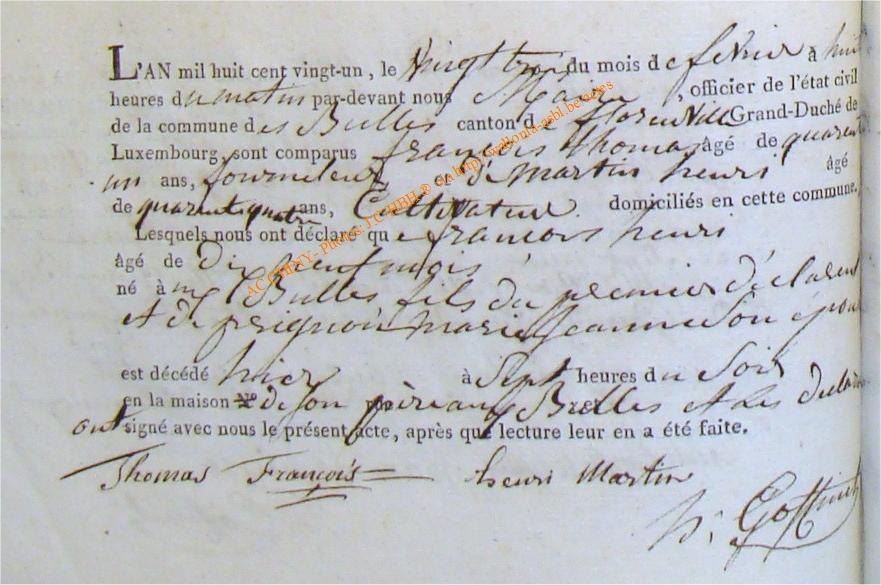 L'AN mil huit cent vingt-un, le Vingt trois du mois de fevrier à huit
heures du matin par-devant nous Maire, officier de l'état civil
de la commune des Bulles canton de florenville Grand-Duché de
Luxembourg, sont comparus françois Thomas âgé de quarent
un ans, journalier et de Martin henri âgé
de quarent quatre ans, Cultivateur domiciliés en cette commune.
Lesquels nous ont déclaré que francois henri
âgé de Dix huit mois
né à Bulles fils du premier déclarent
et de prignon marie Jeanne Son épou
est décédé hier à Sept heures du Soir
en la maison N° de son père aux Bulles et les declar
ont signé avec nous le présent acte, après que lecture leur en a été faite.
Thomas François henri Martin
Goffinet